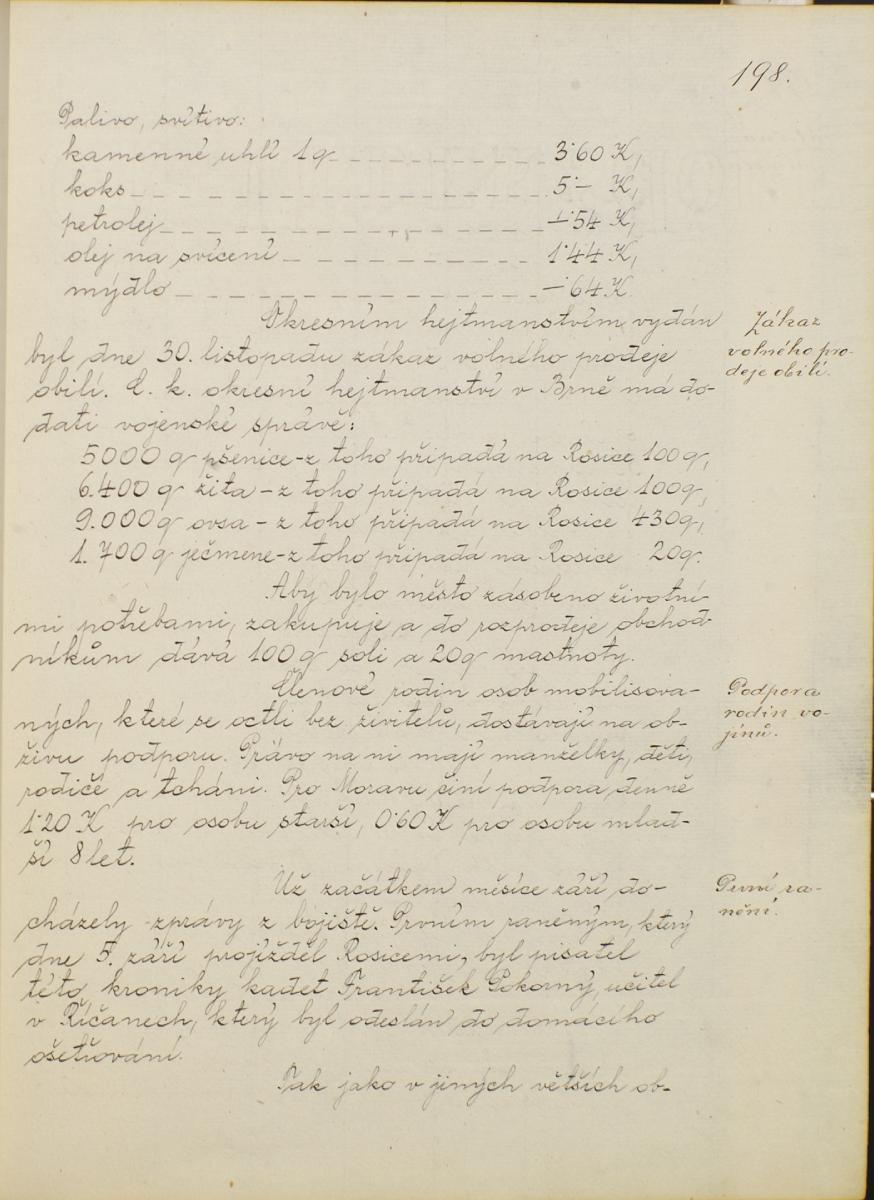 198.
Palivo, svítivo:
kamenné uhlí 1 q 3·60 K,
koks 5·— K,
petrolej —·54 K,
olej na svícení 1·44 K,
mýdlo —·64 K
Okresním hejtmanstvím vydán
byl dne 30. listopadu zákaz volného prodeje
obilí. C. k. okresní hejtmanství v Brně má do-
dati vojenské správě:
5000 q pšenice - z toho připadá na Rosice 100 q,
6.400 q žita - z toho připadá na Rosice 100 q,
9.000 q ovsa - z toho připadá na Rosice 430 q,
1.700 q ječmene - z toho připadá na Rosice 20 q.
Aby bylo město zásobeno životní-
mi potřebami, zakupuje a do rozprodeje obchod-
níkům dává 100 q soli a 20 q mastnoty.
Členové rodin osob mobilisova-
ných, které se octli bez živitelů, dostávají na ob-
živu podporu. Právo na ni mají manželky, děti,
rodiče a tcháni. Pro Moravu činí podpora denně
1·20 K pro osobu starší, 0·60 K pro osobu mlad-
ší 8 let.
Už začátkem měsíce září do-
cházely zprávy z bojiště. Prvním raněným, který
dne 5. září projížděl Rosicemi, byl pisatel
této kroniky kadet František Pokorný, učitel
v Říčanech, který byl odeslán do domácího
ošetřování.
Tak jako v jiných větších ob-
Zákaz
volného pro-
deje obilí.
Podpora
rodin vo-
jínů.
První ra-
nění.